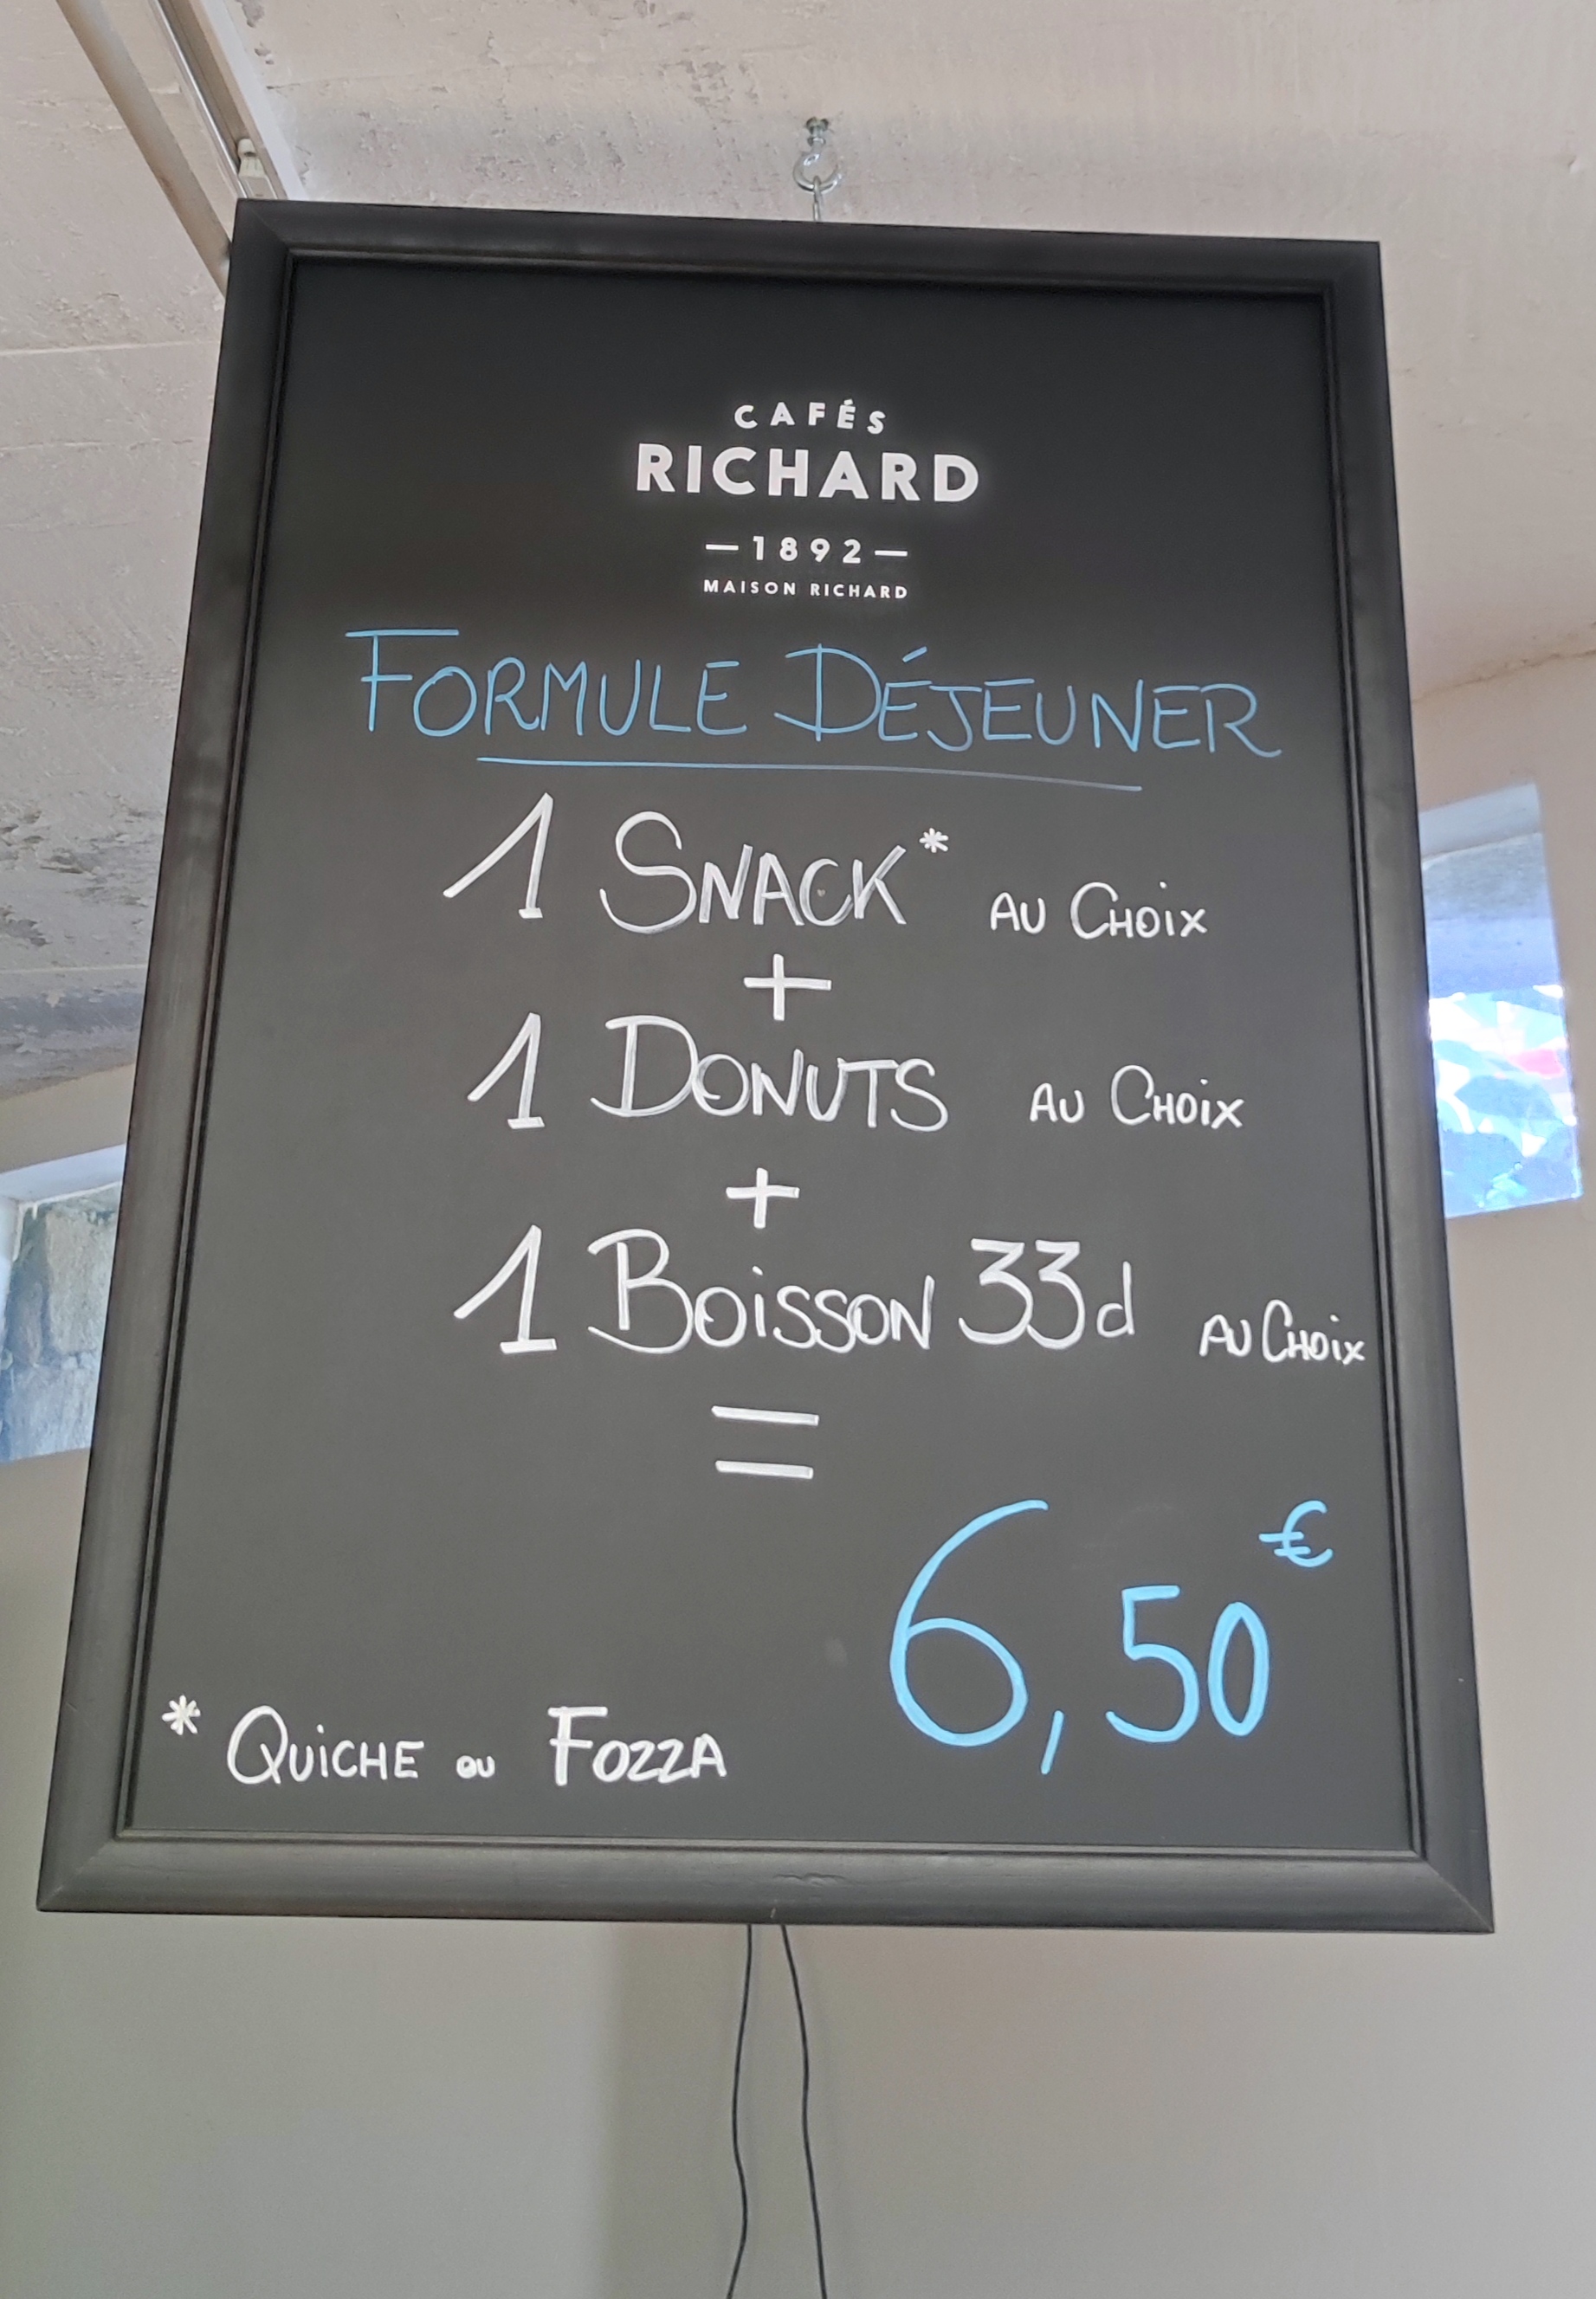 CAFÉS
RICHARD
—1892—
MAISON RICHARD
FORMULE DÉJEUNER
1 SNACK* AU CHOIX
+
1 DONUTS AU CHOIX
+
1 BOISSON 33cl AU CHOIX
=
6,50€
* QUICHE OU FOZZA